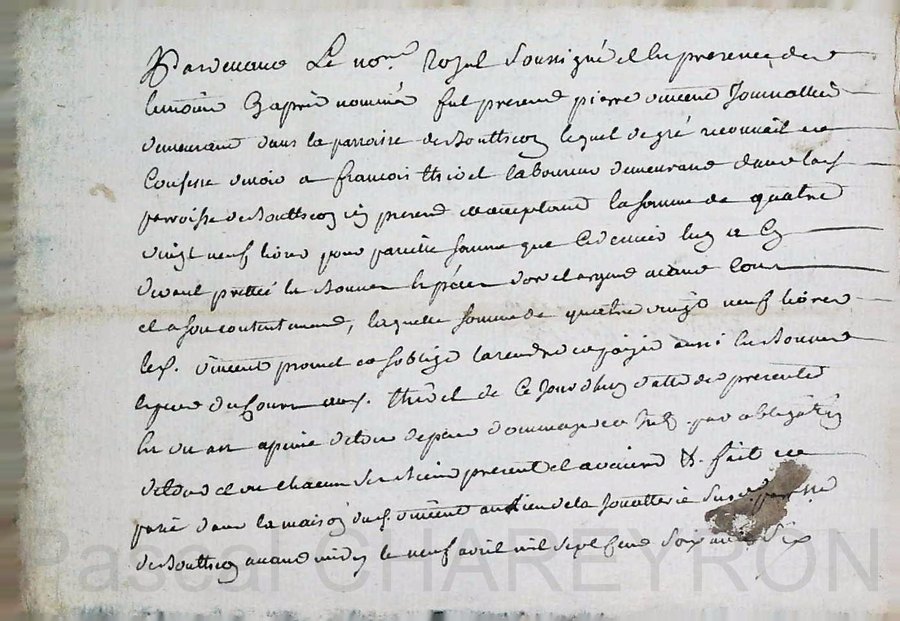 Pardevant Le nore. Royal Soussigné et En presence des
temoins Cy apres nommés fut present pierre vincent Journallier
demeurant dans la parroisse de lequel de gré reconnoit et
Confesse devoir a francois laboureur demeurant dans lad.
parroisse de icy present acceptant la somme de quatre
vingt neuf livres pour pareille somme que Ce dernier luy a Cy
devant pretté En Bonnes Espéces d'or et argent avant Cour
et a son contentement, laquelle somme de quatre vingt neuf livres
led. vincent promet et s'oblige la rendre et payer aussi En Bonnes
Espéces du Cours aud. de Ce Jourdhuy datte des presentes
En un an a peine de tous depens dommages et par obligation
de tous et un Chacun Ses Biens presents et avenirs &. fait et
passé dans la maison dud. vincent au lieu de la Sus d. parroisse
de avant midy le neuf avril mil sept Cens Soixante Six
Pascal CHAREYRON